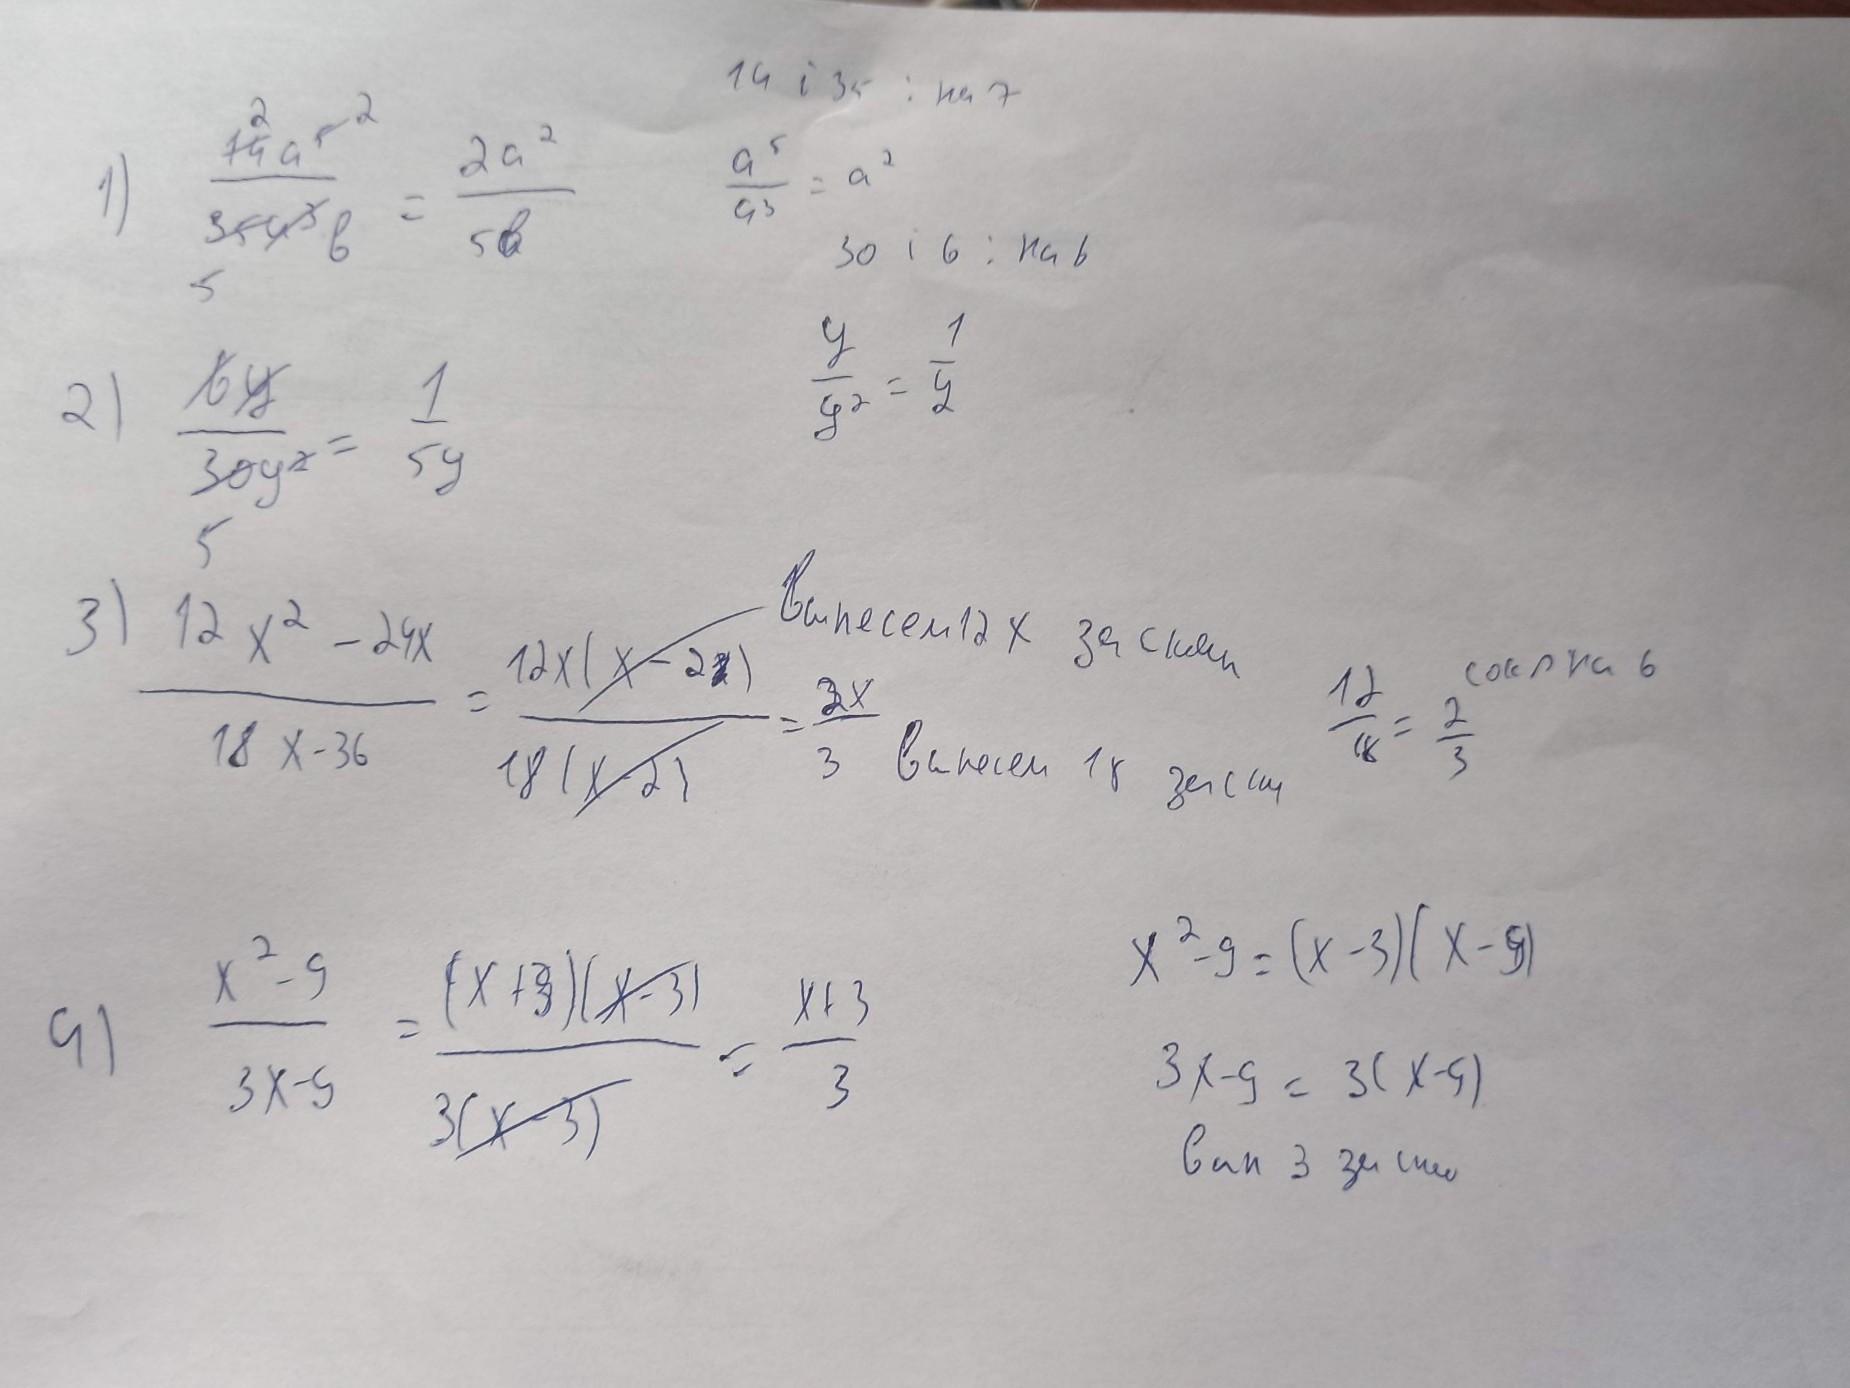 14 і 35 : на 7
1) 14a⁵/35a³b = 2a²/5b
2
2
5
a⁵/a³ = a²
30 і 6 : на 6
2) 6y/30y² = 1/5y
5
y/y² = 1/y
3) 12x² - 24x / 18x - 36 = 12x(x - 2) / 18(x - 2) = 2x/3
Вынесем 12x за скобки
Вынесем 18 за ско
12/18 = 2/3 сокл на 6
4) x² - 9 / 3x - 9 = (x + 3)(x - 3) / 3(x - 3) = x + 3 / 3
x² - 9 = (x - 3)(x - 9)
3x - 9 = 3(x - 9)
вын 3 за ско